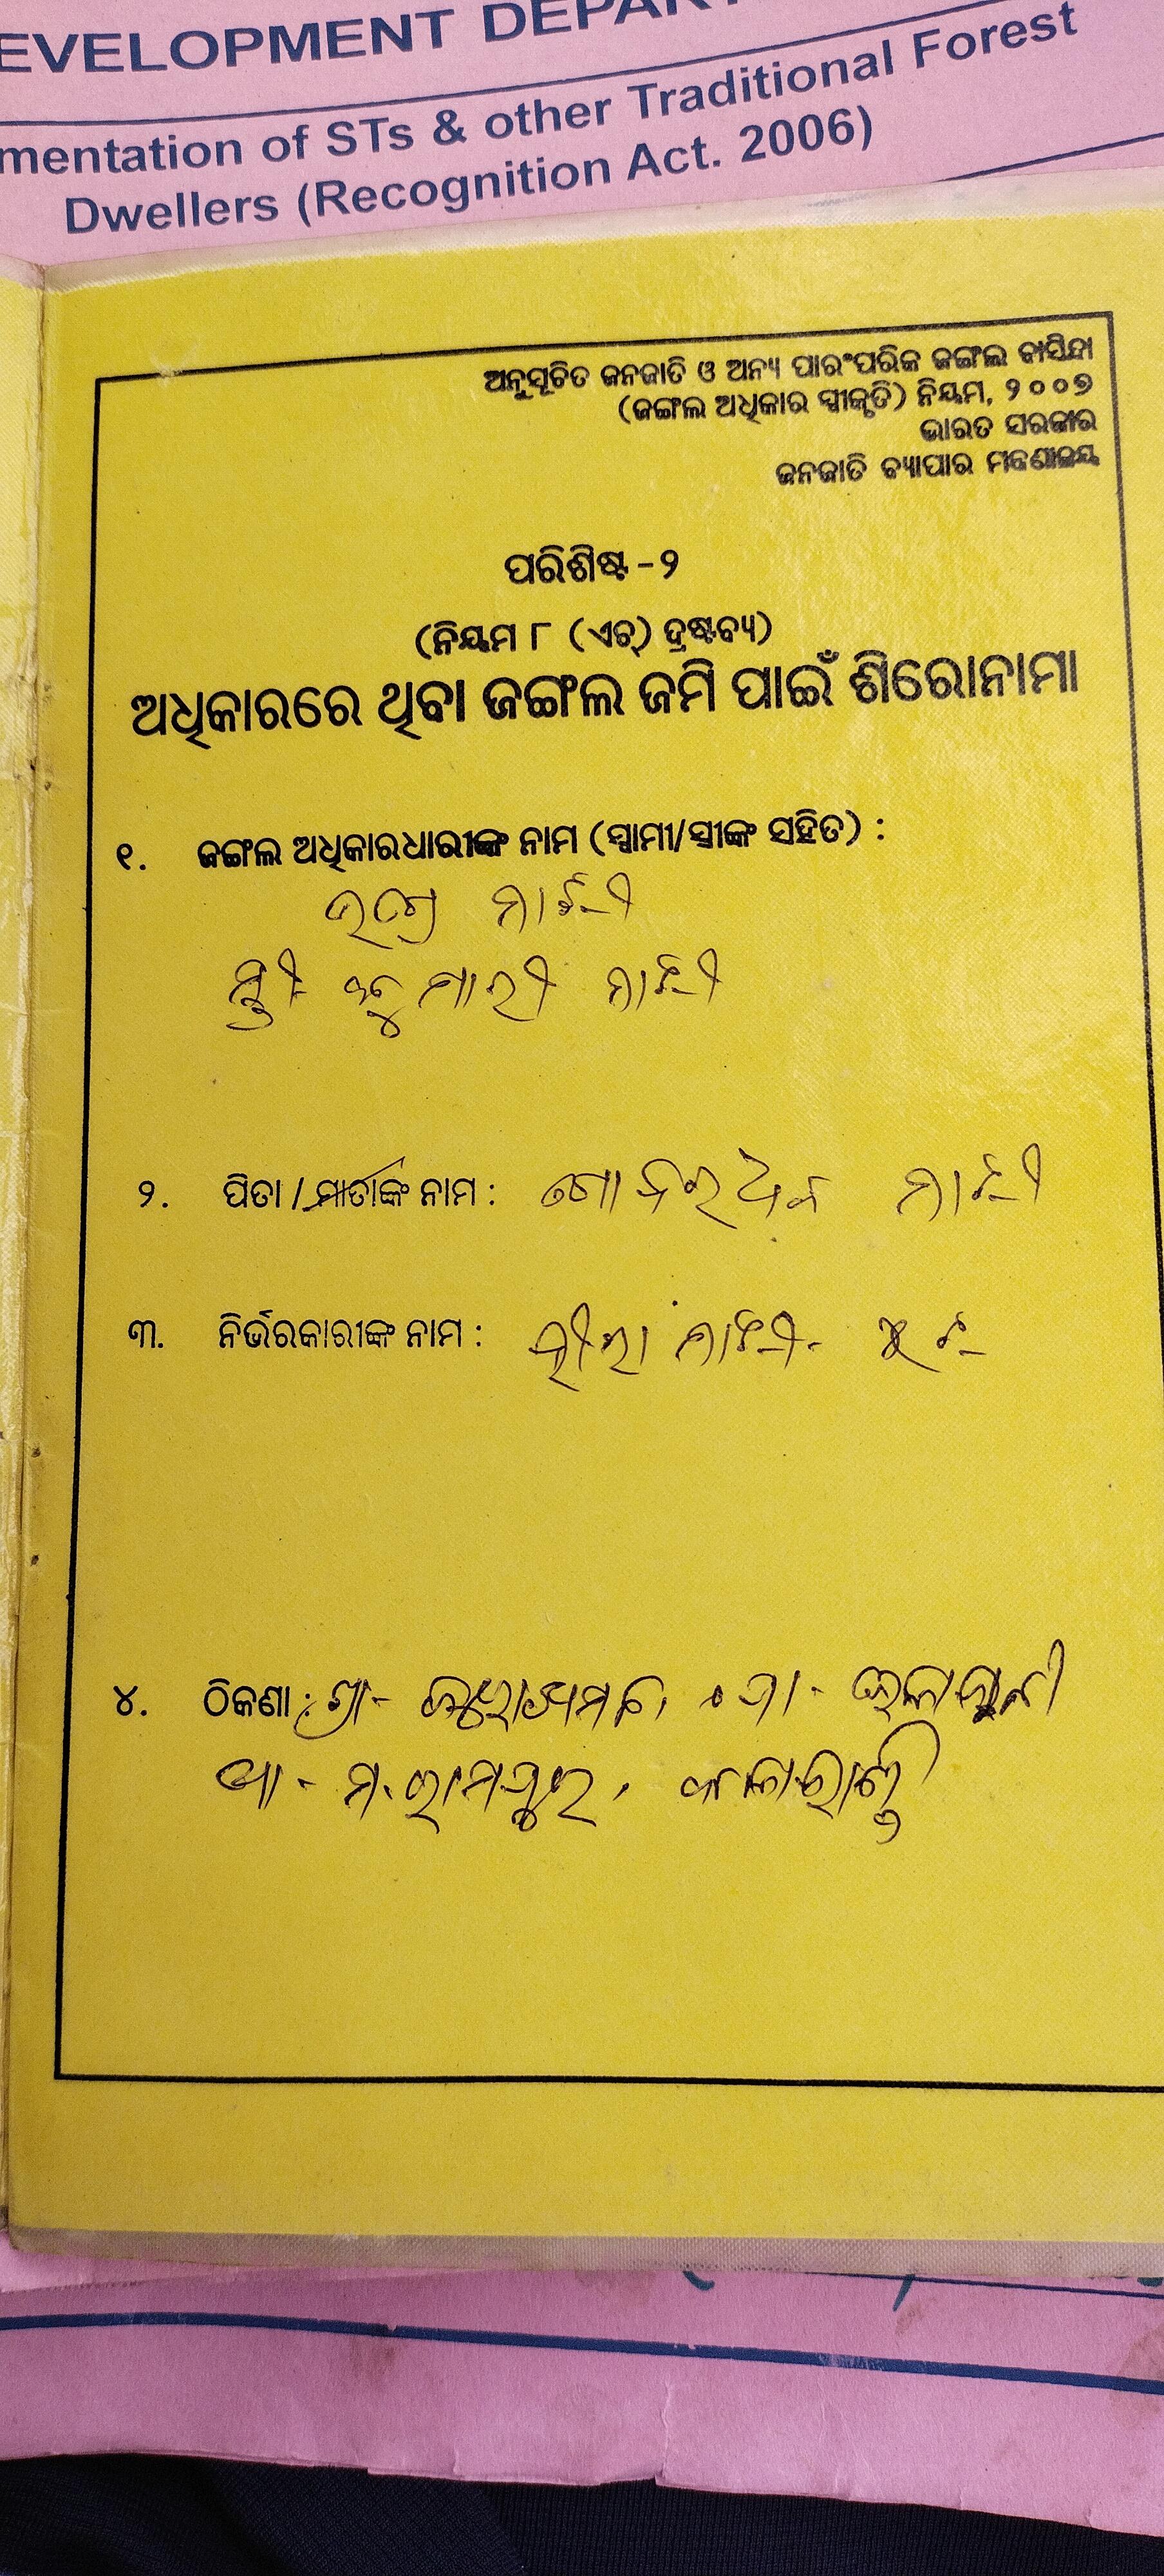 EVELOPMENT DEPAR
mentation of STs & other Traditional Forest
Dwellers (Recognition Act. 2006)
ଅନୁସୂଚିତ ଜନଜାତି ଓ ଅନ୍ୟ ପାରଂପରିକ ଜଙ୍ଗଲ ବାସିନ୍ଦା
(ଜଙ୍ଗଲ ଅଧିକାର ସ୍ୱୀକୃତି) ନିୟମ, ୨୦୦୭
ଭାରତ ସରକାର
ଜନଜାତି ବ୍ୟାପାର ମନ୍ତ୍ରଣାଳୟ
ପରିଶିଷ୍ଟ-୨
(ନିୟମ ୮ (ଏଚ୍) ଦ୍ରଷ୍ଟବ୍ୟ)
ଅଧିକାରରେ ଥିବା ଜଙ୍ଗଲ ଜମି ପାଇଁ ଶିରୋନାମା
୧. ଜଙ୍ଗଲ ଅଧିକାରଧାରୀଙ୍କ ନାମ (ସ୍ୱାମୀ/ସ୍ତ୍ରୀଙ୍କ ସହିତ) :
ମାଝୀ
ସ୍ତ୍ରୀ- କୁମାରୀ ମାଝୀ
୨. ପିତା / ମାତାଙ୍କ ନାମ : ମାଝୀ
୩. ନିର୍ଭରକାରୀଙ୍କ ନାମ : ହୀରା ମାଝୀ
୪. ଠିକଣା : ଗ୍ରା-
ଥା- ମ.ରାମପୁର, କଳାହାଣ୍ଡି